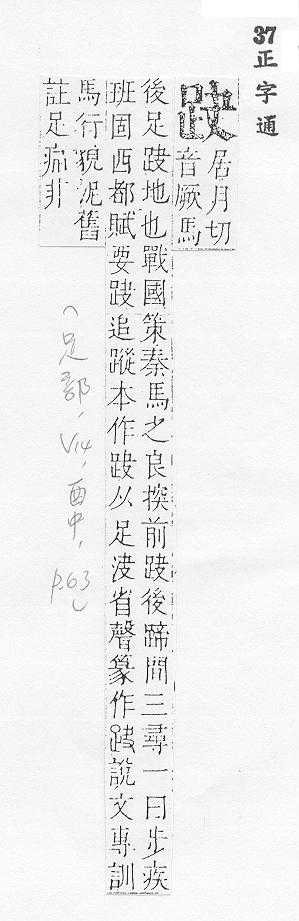 37 正字通
趹
居月切
音厥馬
後足趹地也戰國策秦馬之良探前趹後蹄間三尋一曰步疾
班固西都賦要趹追蹤本作趹从足決省聲篆作趹說文專訓
馬行貌泥舊
註足非
(足部, V14, 酉中, p.63)